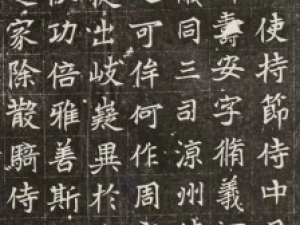 使持節侍中
壽安字脩義
同三司涼州
可侔何作周
出岐嶷異於
功倍雅善斯
家除散騎侍